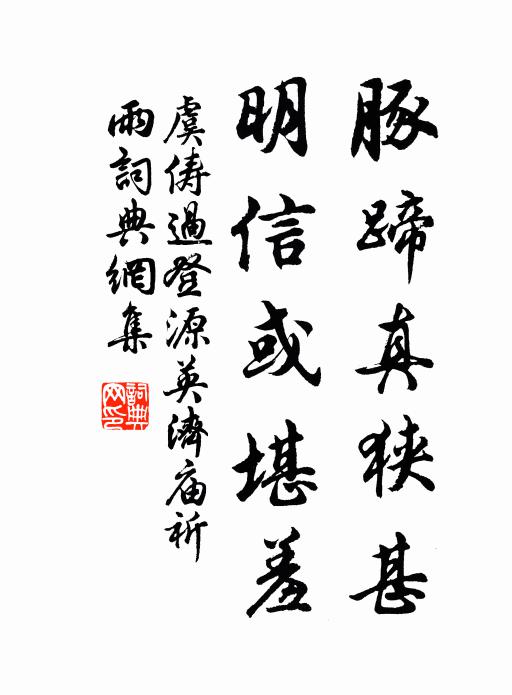 豚蹄真狹甚
明信或堪羞
虞儔過登源英濟庙祈
雨詞典網集
詞典
网印